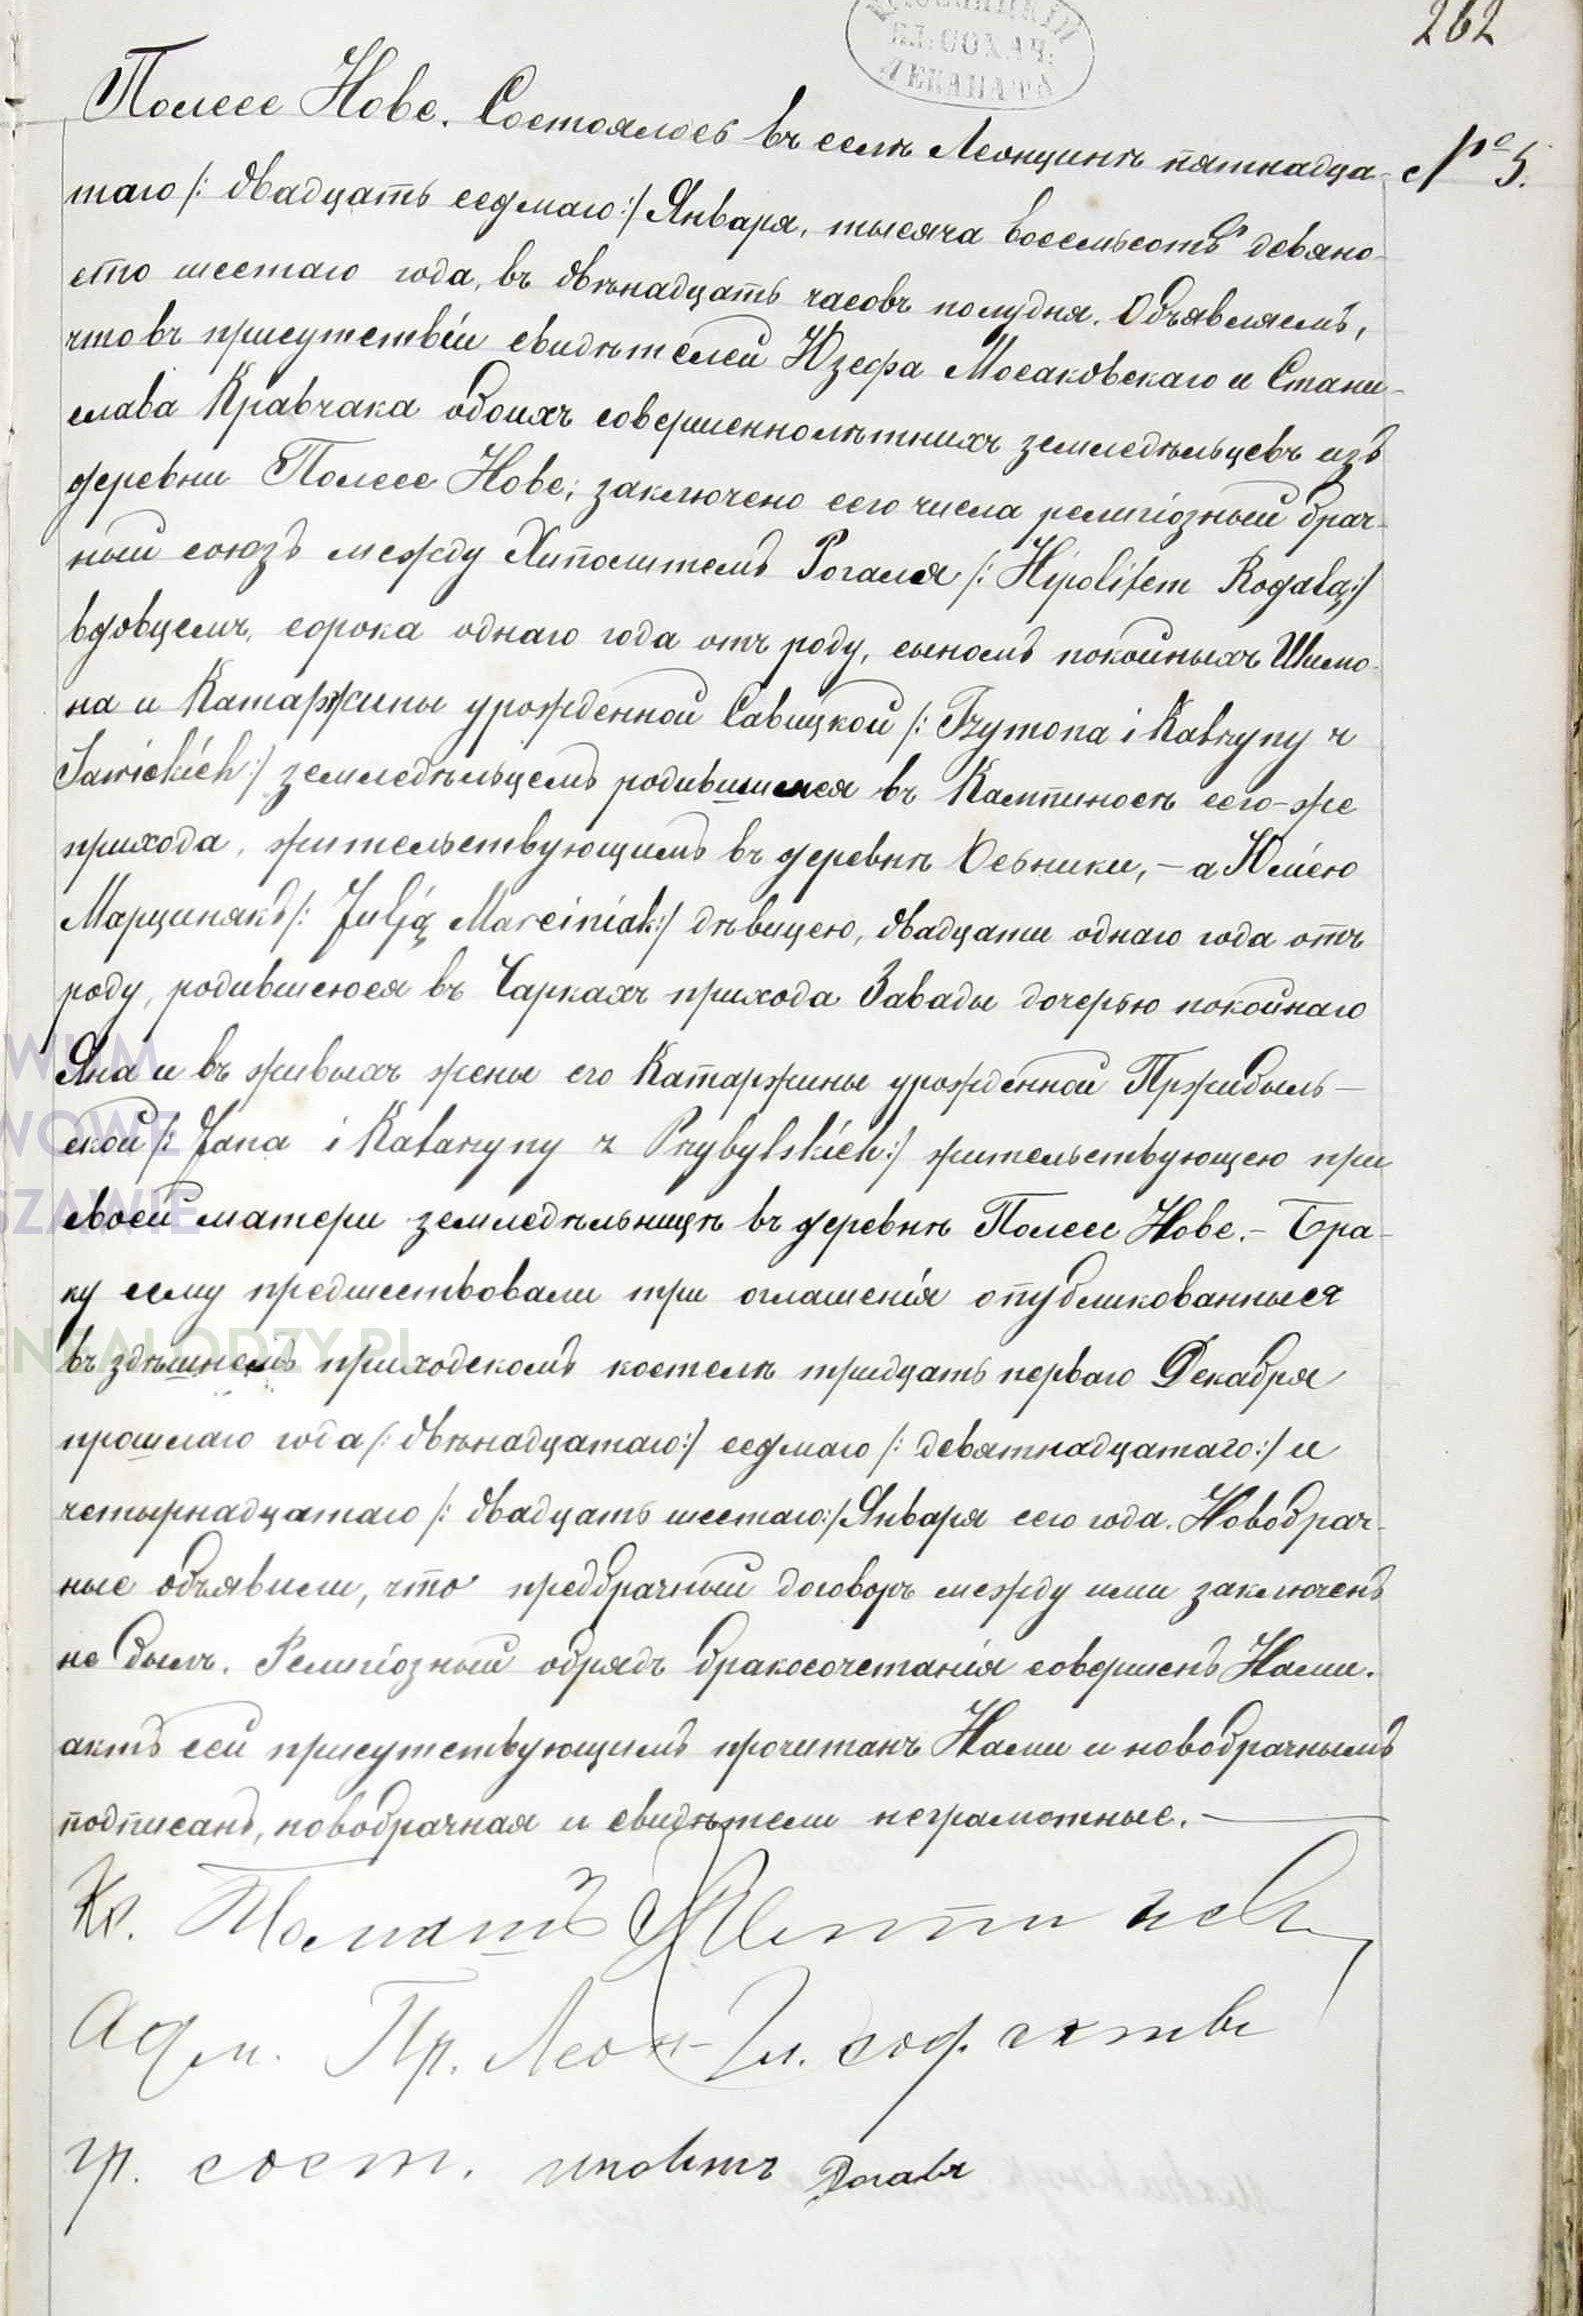 262
СОХАЧ.
ДЕКАНАТА
Полесе Нове. Состоялось въ селѣ Леонцинѣ пятнадца-
№ 5.
таго /: двадцать седмаго :/ Января, тысяча восемьсотъ девяно-
сто шестаго года, въ двѣнадцать часовъ полудня. Объявляемъ,
что въ присутствіи свидѣтелей Юзефа Мосаковскаго и Стани-
слава Кравчака обоихъ совершеннолѣтнихъ земледѣльцевъ изъ
деревни Полесе Нове; заключено сего числа религіозный брач-
ный союзъ между Хиполитемъ Рогаля /: Hipolitem Rogalą :/
вдовцемъ, сорока однаго года отъ роду, сыномъ покойныхъ Шимо-
на и Катаржины урожденной Савицкой /: Szymona i Katrzyny z
Sawickich :/ земледѣльцемъ родившимся въ Кампиносѣ сего-же
прихода, жительствующимъ въ деревнѣ Осьники, — а Юліею
Марцинякъ /: Julją Marciniak :/ дѣвицею, двадцати однаго года отъ
роду, родившеюся въ Чаркахъ прихода Завады дочерью покойнаго
Яна и въ живыхъ жены его Катаржины урожденной Пржибыль-
ской /: Jana i Katarzyny z Przybylskich :/ жительствующею при
своей матери земледѣльницѣ въ деревнѣ Полесе Нове. — Бра-
ку сему предшествовали три оглашенія опубликованныся
въ здѣшнемъ приходскомъ костелѣ тридцать перваго Декабря
прошлаго года /: двѣнадцатаго :/ седмаго /: девятнадцатаго :/ и
четырнадцатаго /: двадцать шестаго :/ Января сего года. Новобрач-
ные объявили, что предбрачный договоръ между ими заключенъ
не былъ. Религіозный обрядъ бракосочетанія совершенъ Нами.
актъ сей присутствующимъ прочитанъ Нами и новобрачнымъ
подписанъ, новобрачная и свидѣтели неграмотные. —
Кс. Томашъ
Адм. Пр. Леон. сод. актъв
гр. сост.